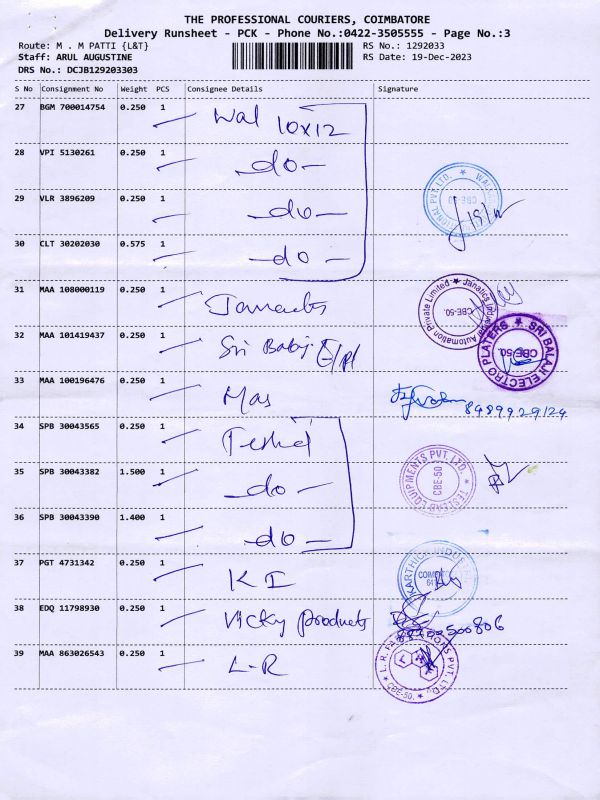 THE PROFESSIONAL COURIERS, COIMBATORE
Delivery Runsheet - PCK - Phone No.:0422-3505555 - Page No.:3
Route: M . M PATTI {L&T} RS No.: 1292033
Staff: ARUL AUGUSTINE RS Date: 19-Dec-2023
DRS No.: DCJB129203303
S No Consignment No Weight PCS Consignee Details Signature
27 BGM 700014754 0.250 1 Wal 10x12
28 VPI 5130261 0.250 1 -do-
29 VLR 3896209 0.250 1 -do-
30 CLT 30202030 0.575 1 -do-
31 MAA 108000119 0.250 1
Janatics Automation Private Limited
CBE-50.
32 MAA 101419437 0.250 1 Sri
SRI BALAJI ELECTRO PLATERS
CBE-50.
33 MAA 100196476 0.250 1 Mas 8489929124
34 SPB 30043565 0.250 1
35 SPB 30043382 1.500 1 -do-
EQUIPMENTS PVT. LTD.
CBE-50
36 SPB 30043390 1.400 1 -do-
37 PGT 4731342 0.250 1 K I
KARTHICK INDUS
38 EDQ 11798930 0.250 1 Vicky Products
39 MAA 863026543 0.250 1 L-R
L.R. PVT. LTD.
CBE-50.